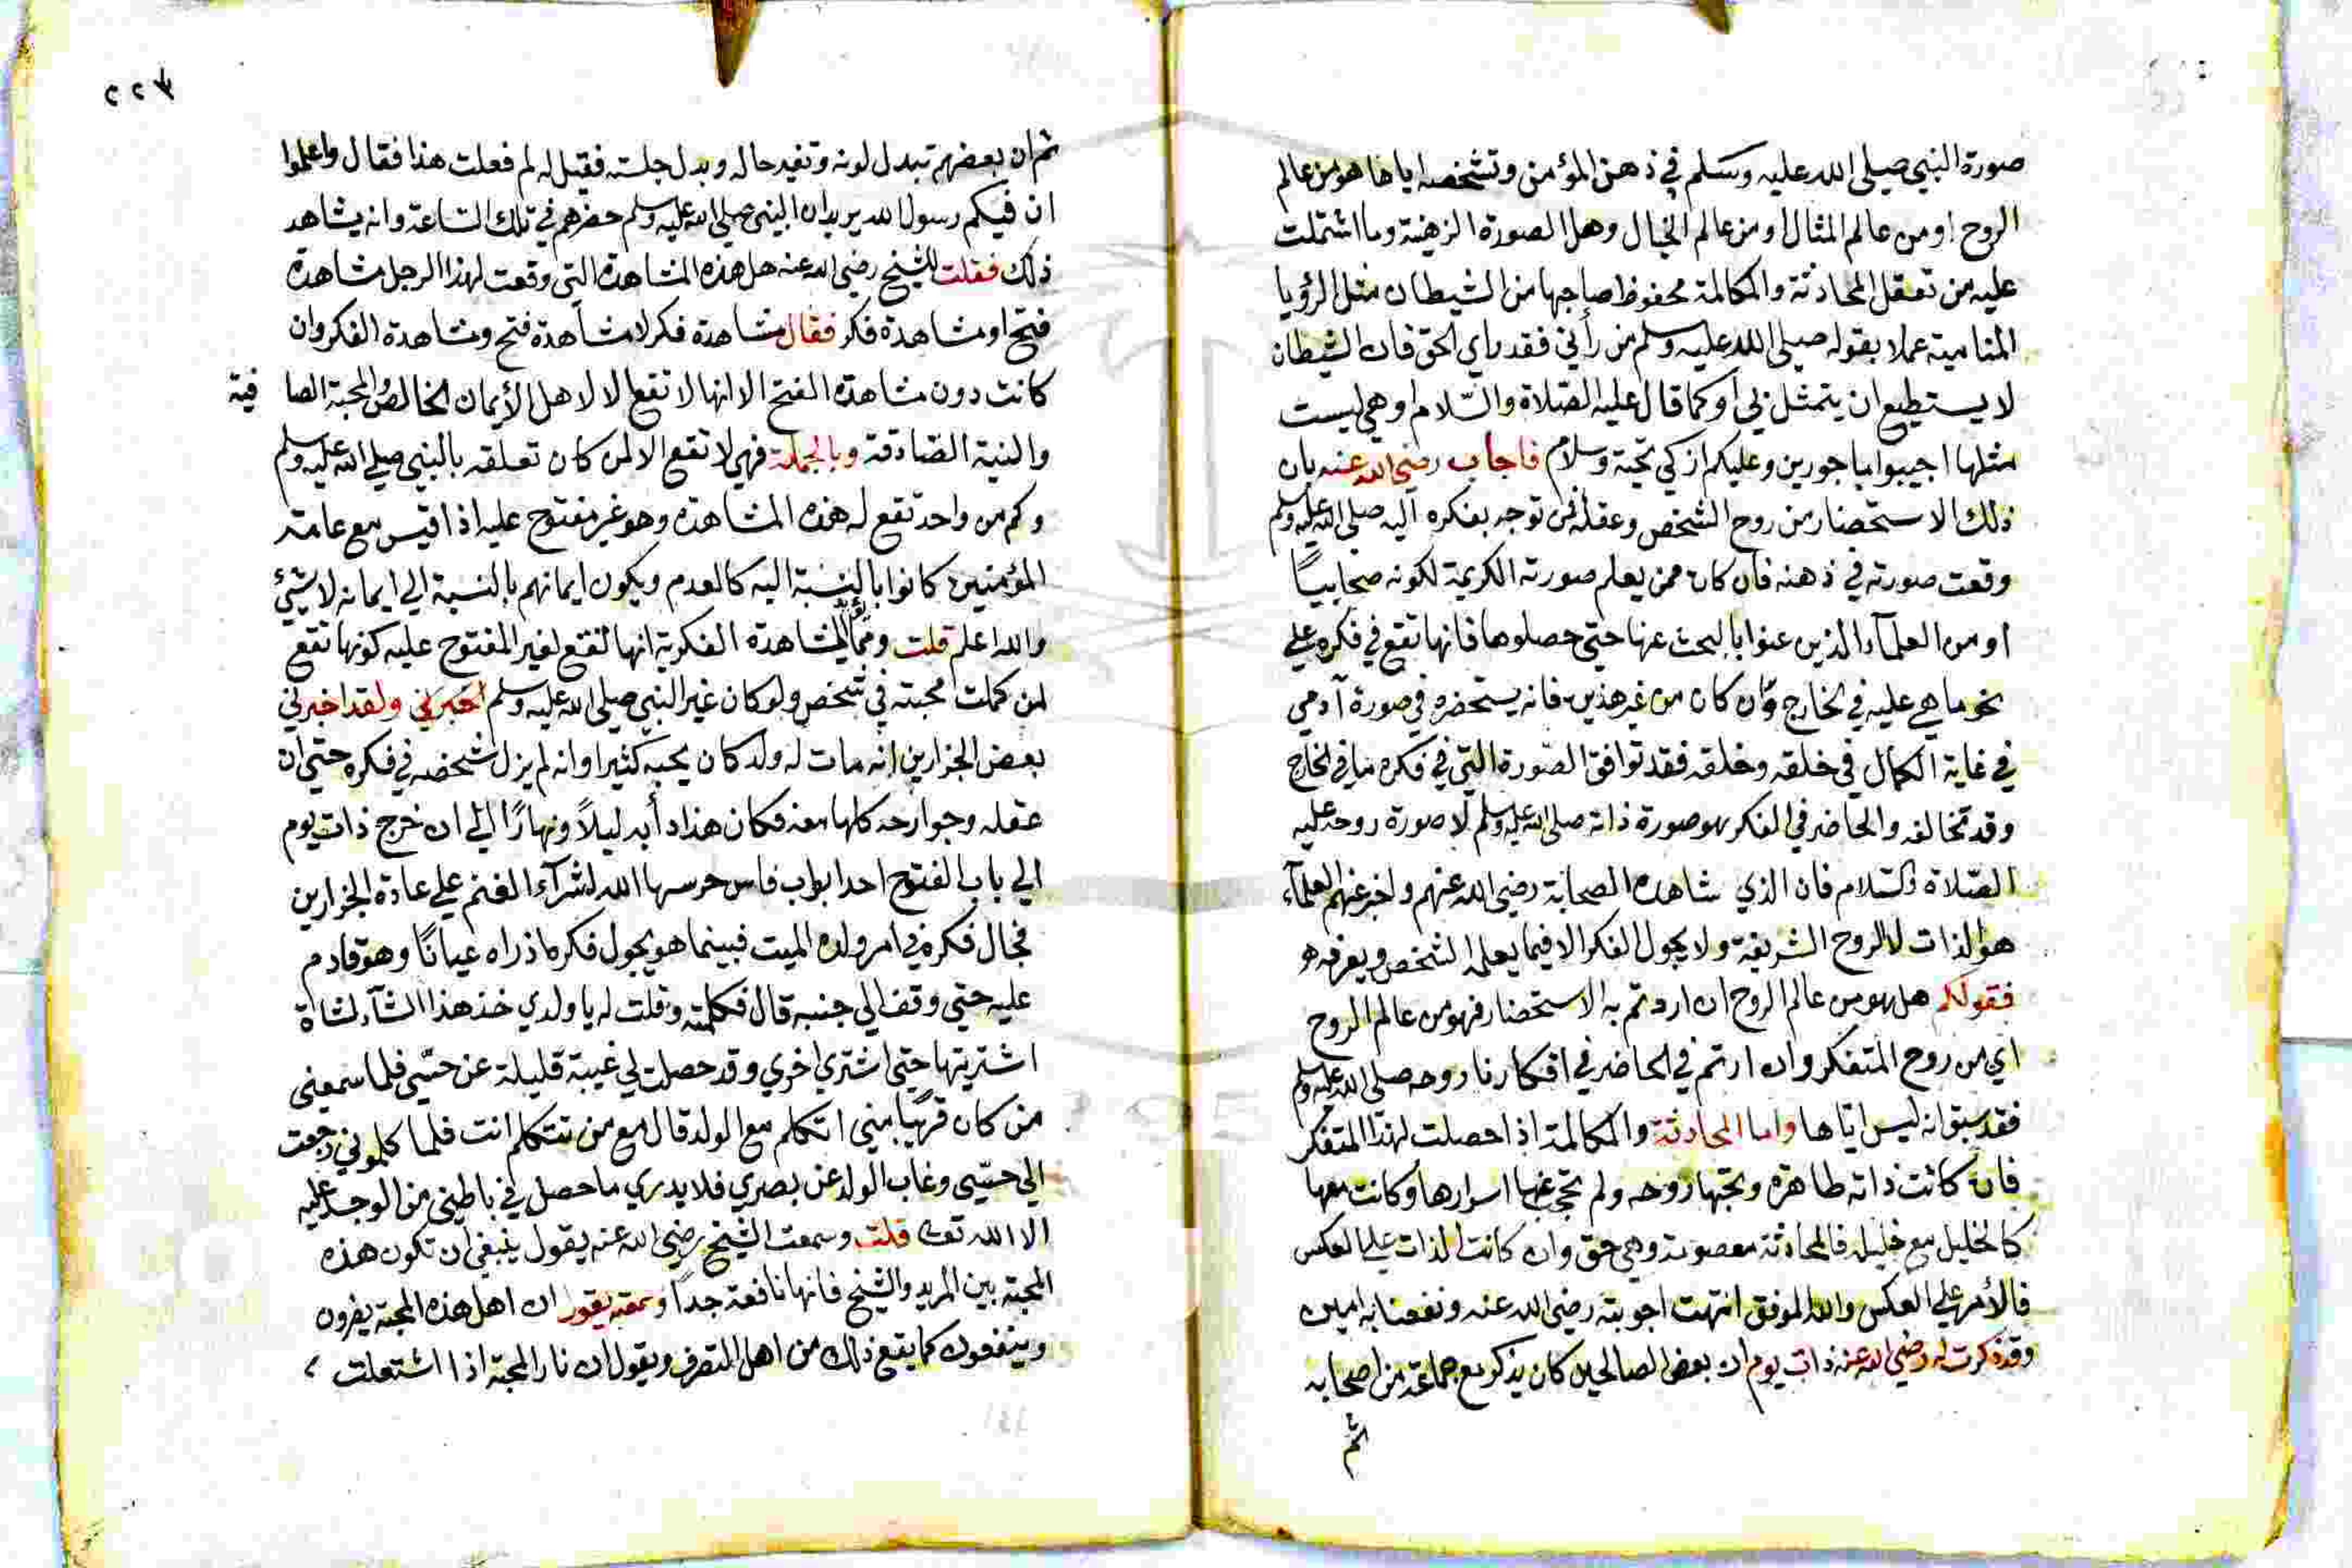 صورة النبي صلى الله عليه وسلم في ذهن المؤمن وتشخصه اياها هو من عالم
الروح او من عالم المثال او من عالم الخيال وهل الصورة الذهنية وما اشتملت
عليه من تعقل المحادثة والمكالمة محفوظ صاحبها من الشيطان مثل الرؤيا
المنامية عملا بقوله صلى الله عليه وسلم من رأني فقد راي الحق فان الشيطان
لا يستطيع ان يتمثل بي او كما قال عليه الصلاة والسّلام او هي ليست
مثلها اجيبوا ماجورين وعليكم ازكي تحية وسلام فاجاب رضي الله عنه بان
ذلك الاستحضار من روح الشخص وعقله فمن توجه بفكره اليه صلى الله عليه وسلم
وقعت صورته في ذهنه فان كان ممن يعلم صورته الكريمة لكونه صحابيًا
او من العلمآء الذين عنوا بالبحث عنها حتي حصلوها فانها تقع في فكره علي
نحو ما هي عليه في الخارج وان كان من غير هذين فانه يستحضره في صورة آدمي
في غاية الكمال في خلقه وخلقه فقد توافق الصّورة التي في فكره ما في الخارج
وقد تخالفه والحاضر في الفكر هو صورة ذاته صلى الله عليه وسلم لا صورة روحه عليه
الصّلاة والسّلام فان الذي شاهده الصحابة رضي الله عنهم واخبر عنهم العلمآء
هو الذات لا الروح الشريفة ولا يجول الفكر الا فيما يعلمه الشخص ويعرفه
فقولكم هل هو من عالم الروح ان اردتم به الاستحضار فهو من عالم الروح
اي من روح المتفكر وان اردتم في الحاضر في افكارنا روحه صلى الله عليه وسلم
فقد سبق انه ليس اياها واما المحادثة والمكالمة اذا حصلت لهذا المتفكر
فان كانت ذاته طاهرة وتحبها روحه ولم تحجب عنها اسرارها وكانت معها
كالخليل مع خليله فالمحادثة معصومة وهي حق وان كانت الذات علي العكس
فالأمر علي العكس والله الموفق انتهت اجوبته رضي الله عنه ونفعنا به امين
وقد ذكرت له رضي الله عنه ذات يوم ان بعض الصالحين كان يذكر مع جماعة من اصحابه
ثم
٢٢٣
ثم ان بعضهم تبدل لونه وتغير حاله وبدل جلسته فقيل له لم فعلت هذا فقال واعلموا
ان فيكم رسول الله يريد ان النبي صلى الله عليه وسلم حضرهم في تلك السّاعة وانه يشاهد
ذلك فقلت للشيخ رضي الله عنه هل هذه المشاهدة التي وقعت لهذا الرجل مشاهدة
فتح او مشاهدة فكر فقال مشاهدة فكر لا مشاهدة فتح ومشاهدة الفكر وان
كانت دون مشاهدة الفتح الا انها لا تقع الا لاهل الأيمان الخالص والمحبة الصافية
والنية الصّادقة وبالجملة فهي لا تقع الا لمن كان تعلقه بالنبي صلى الله عليه وسلم
وكم من واحد تقع له هذه المشاهدة وهو غير مفتوح عليه اذا قيس مع عامة
المؤمنين كانوا بالنسبة اليه كالعدم ويكون ايمانهم بالنسبة الي ايمانه لا شيئ
والله اعلم قلت ومما يؤيد المشاهدة الفكرية انها تقع لغير المفتوح عليه كونها تقع
لمن كملت محبته في شخص ولو كان غير النبي صلى الله عليه وسلم اخبرني ولقد اخبرني
بعض الجزارين انه مات له ولد كان يحبه كثيرا وانه لم يزل شخصه في فكره حتي ان
عقله وجوارحه كلها معه فكان هذا دأبه ليلاً ونهارًا الي ان خرج ذات يوم
الي باب الفتوح احد ابواب فاس حرسها الله لشرآء الغنم علي عادة الجزارين
فجال فكره في امر ولده الميت فبينما هو يجول فكره اذ راه عيانًا وهو قادم
عليه حتي وقف الي جنبه قال فكلمته وقلت له يا ولدي خذ هذا الشآء لشاة
اشتريتها حتي اشتري اخري وقد حصلت لي غيبة قليلة عن حسّي فلما سمعني
من كان قريبًا مني اتكلم مع الولد قال مع من تتكلم انت فلما كلموني رجعت
الي حسّي وغاب الولد عن بصري فلا يدري ما حصل في باطني من الوجد عليه
الا الله تعالى قلت وسمعت الشيخ رضي الله عنه يقول ينبغي ان تكون هذه
المحبة بين المريد والشيخ فانها نافعة جداً وسمعته يقول ان اهل هذه المحبة يضرون
وينفعون كما يقع ذلك من اهل التصرف ويقول ان نار المحبة اذا اشتعلت